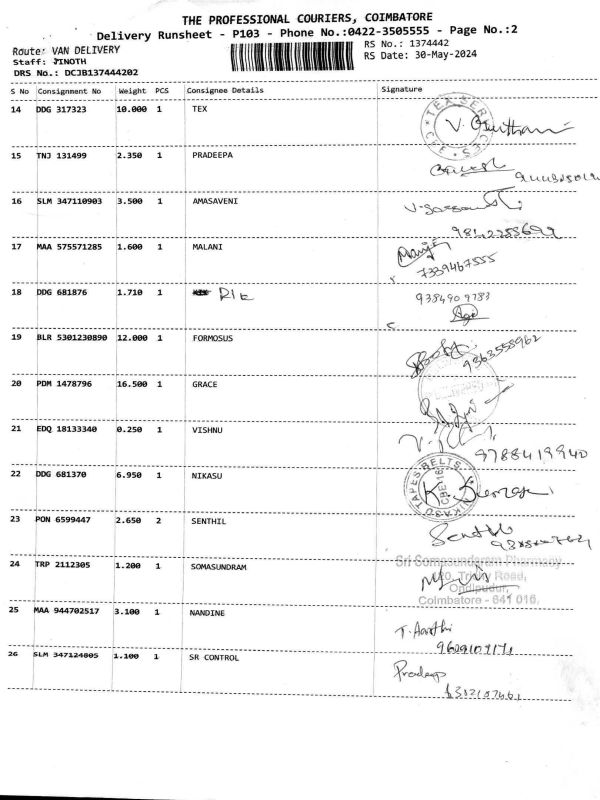 THE PROFESSIONAL COURIERS, COIMBATORE
Delivery Runsheet - P103 - Phone No.:0422-3505555 - Page No.:2
Route: VAN DELIVERY RS No.: 1374442
Staff: JINOTH RS Date: 30-May-2024
DRS No.: DCJB137444202
S No Consignment No Weight PCS Consignee Details Signature
14 DDG 317323 10.000 1 TEX
TEX SERVICES
15 TNJ 131499 2.350 1 PRADEEPA
16 SLM 347110903 3.500 1 AMASAVENI
17 MAA 575571285 1.600 1 MALANI
7339467555
18 DDG 681876 1.710 1
9384909783
19 BLR 5301230890 12.000 1 FORMOSUS
9363558962
20 PDM 1478796 16.500 1 GRACE
21 EDQ 18133340 0.250 1 VISHNU
9788419940
22 DDG 681370 6.950 1 NIKASU
NIKASU TAPES BELTS
23 PON 6599447 2.650 2 SENTHIL
Senthil
24 TRP 2112305 1.200 1 SOMASUNDRAM
Sri Somasundaram Pharmacy
Road,
Ondipudur,
Coimbatore - 641 016.
25 MAA 944702517 3.100 1 NANDINE
T. Aarthi
26 SLM 347124805 1.100 1 SR CONTROL
Pradeep